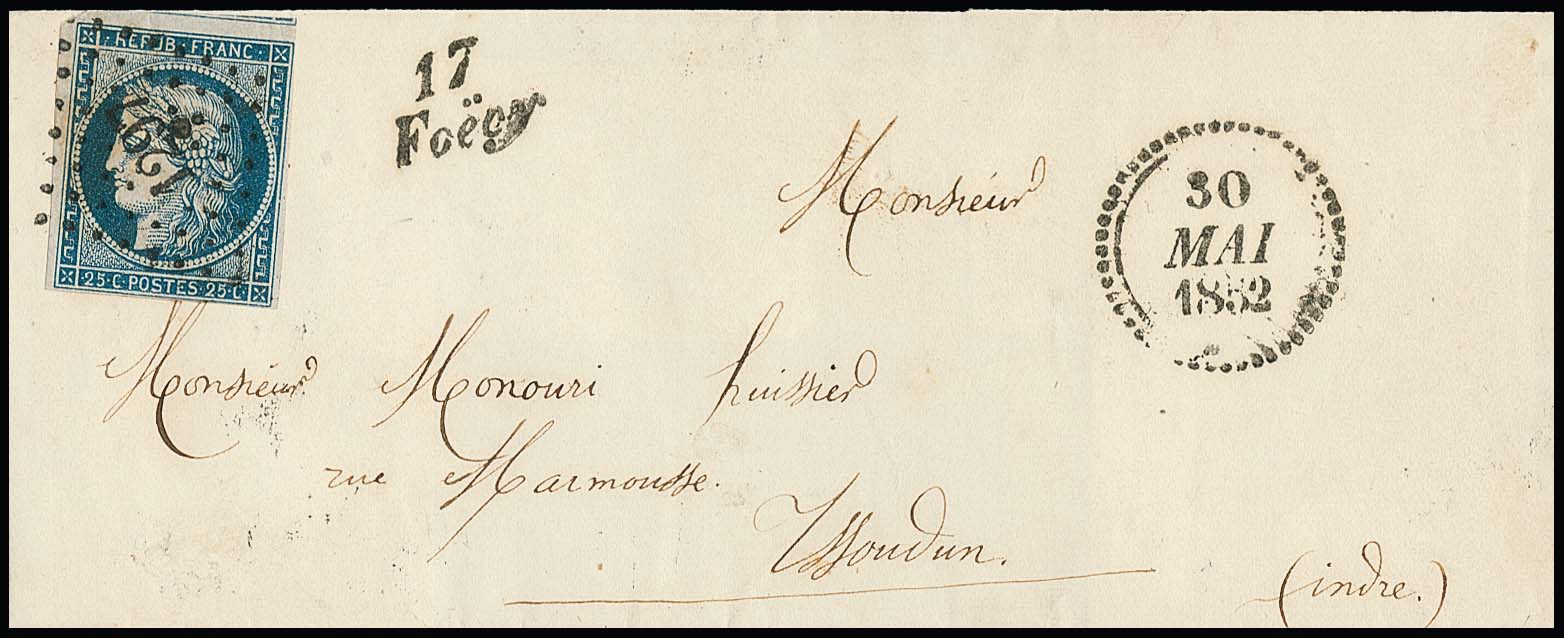 REPUB. FRANC.
1297
25·C·POSTES·25·C·
17
Foëcy
30
MAI
1852
Monsieur
Monsieur Monouri huissier
rue Marmousse.
Issoudun.
(indre.)